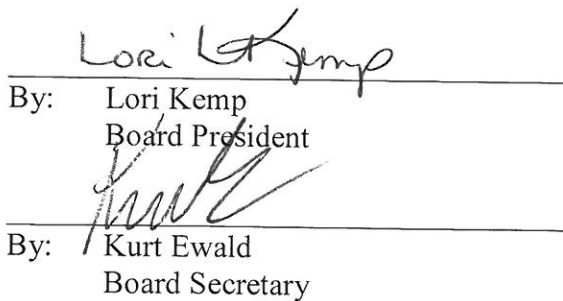 Lori L Kemp
By: Lori Kemp
Board President
By: Kurt Ewald
Board Secretary